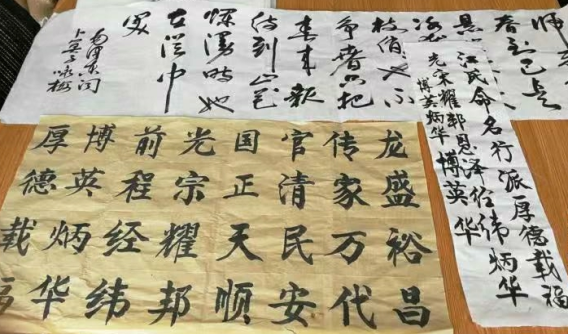 春到已是
悬
枝俏
不
争春只把
春来报
待到山花
烂漫时她
在丛中
笑
毛泽东词
卜算子咏梅
江氏命名行派厚德载福
光宗耀邦恩泽经纬炳华
博英炳华博英华
龙盛裕昌
传家万代
官清民安
国正天顺
光宗耀邦
前程经纬
博英炳华
厚德载福